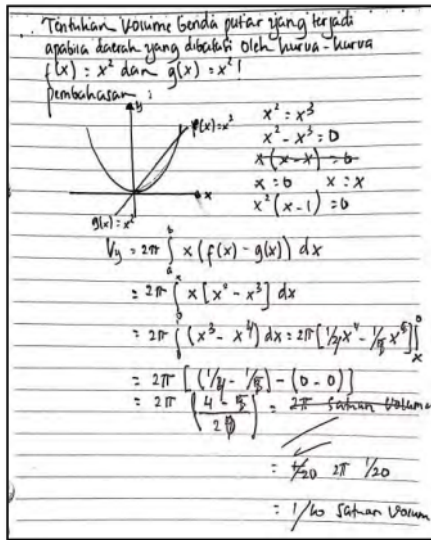 Tentukan volume benda putar yang terjadi
apabila daerah yang dibatasi oleh kurva-kurva
f(x) = x² dan g(x) = x²!
Pembahasan:
y
f(x)=x²
x
g(x)=x²
x² = x³
x² - x³ = 0
x(x-x) = 0
x = 0 x = x
x²(x-1) = 0
Vy = 2π ∫ₐᵇ x(f(x) - g(x)) dx
= 2π ∫₀ˣ x[x² - x³] dx
= 2π ∫ (x³ - x⁴) dx = 2π [1/4 x⁴ - 1/5 x⁵]
= 2π [(1/4 - 1/5) - (0 - 0)]
= 2π (4 - 5 / 20) = 2π satuan volume
= 4/20 2π 1/20
= 1/10 satuan volum